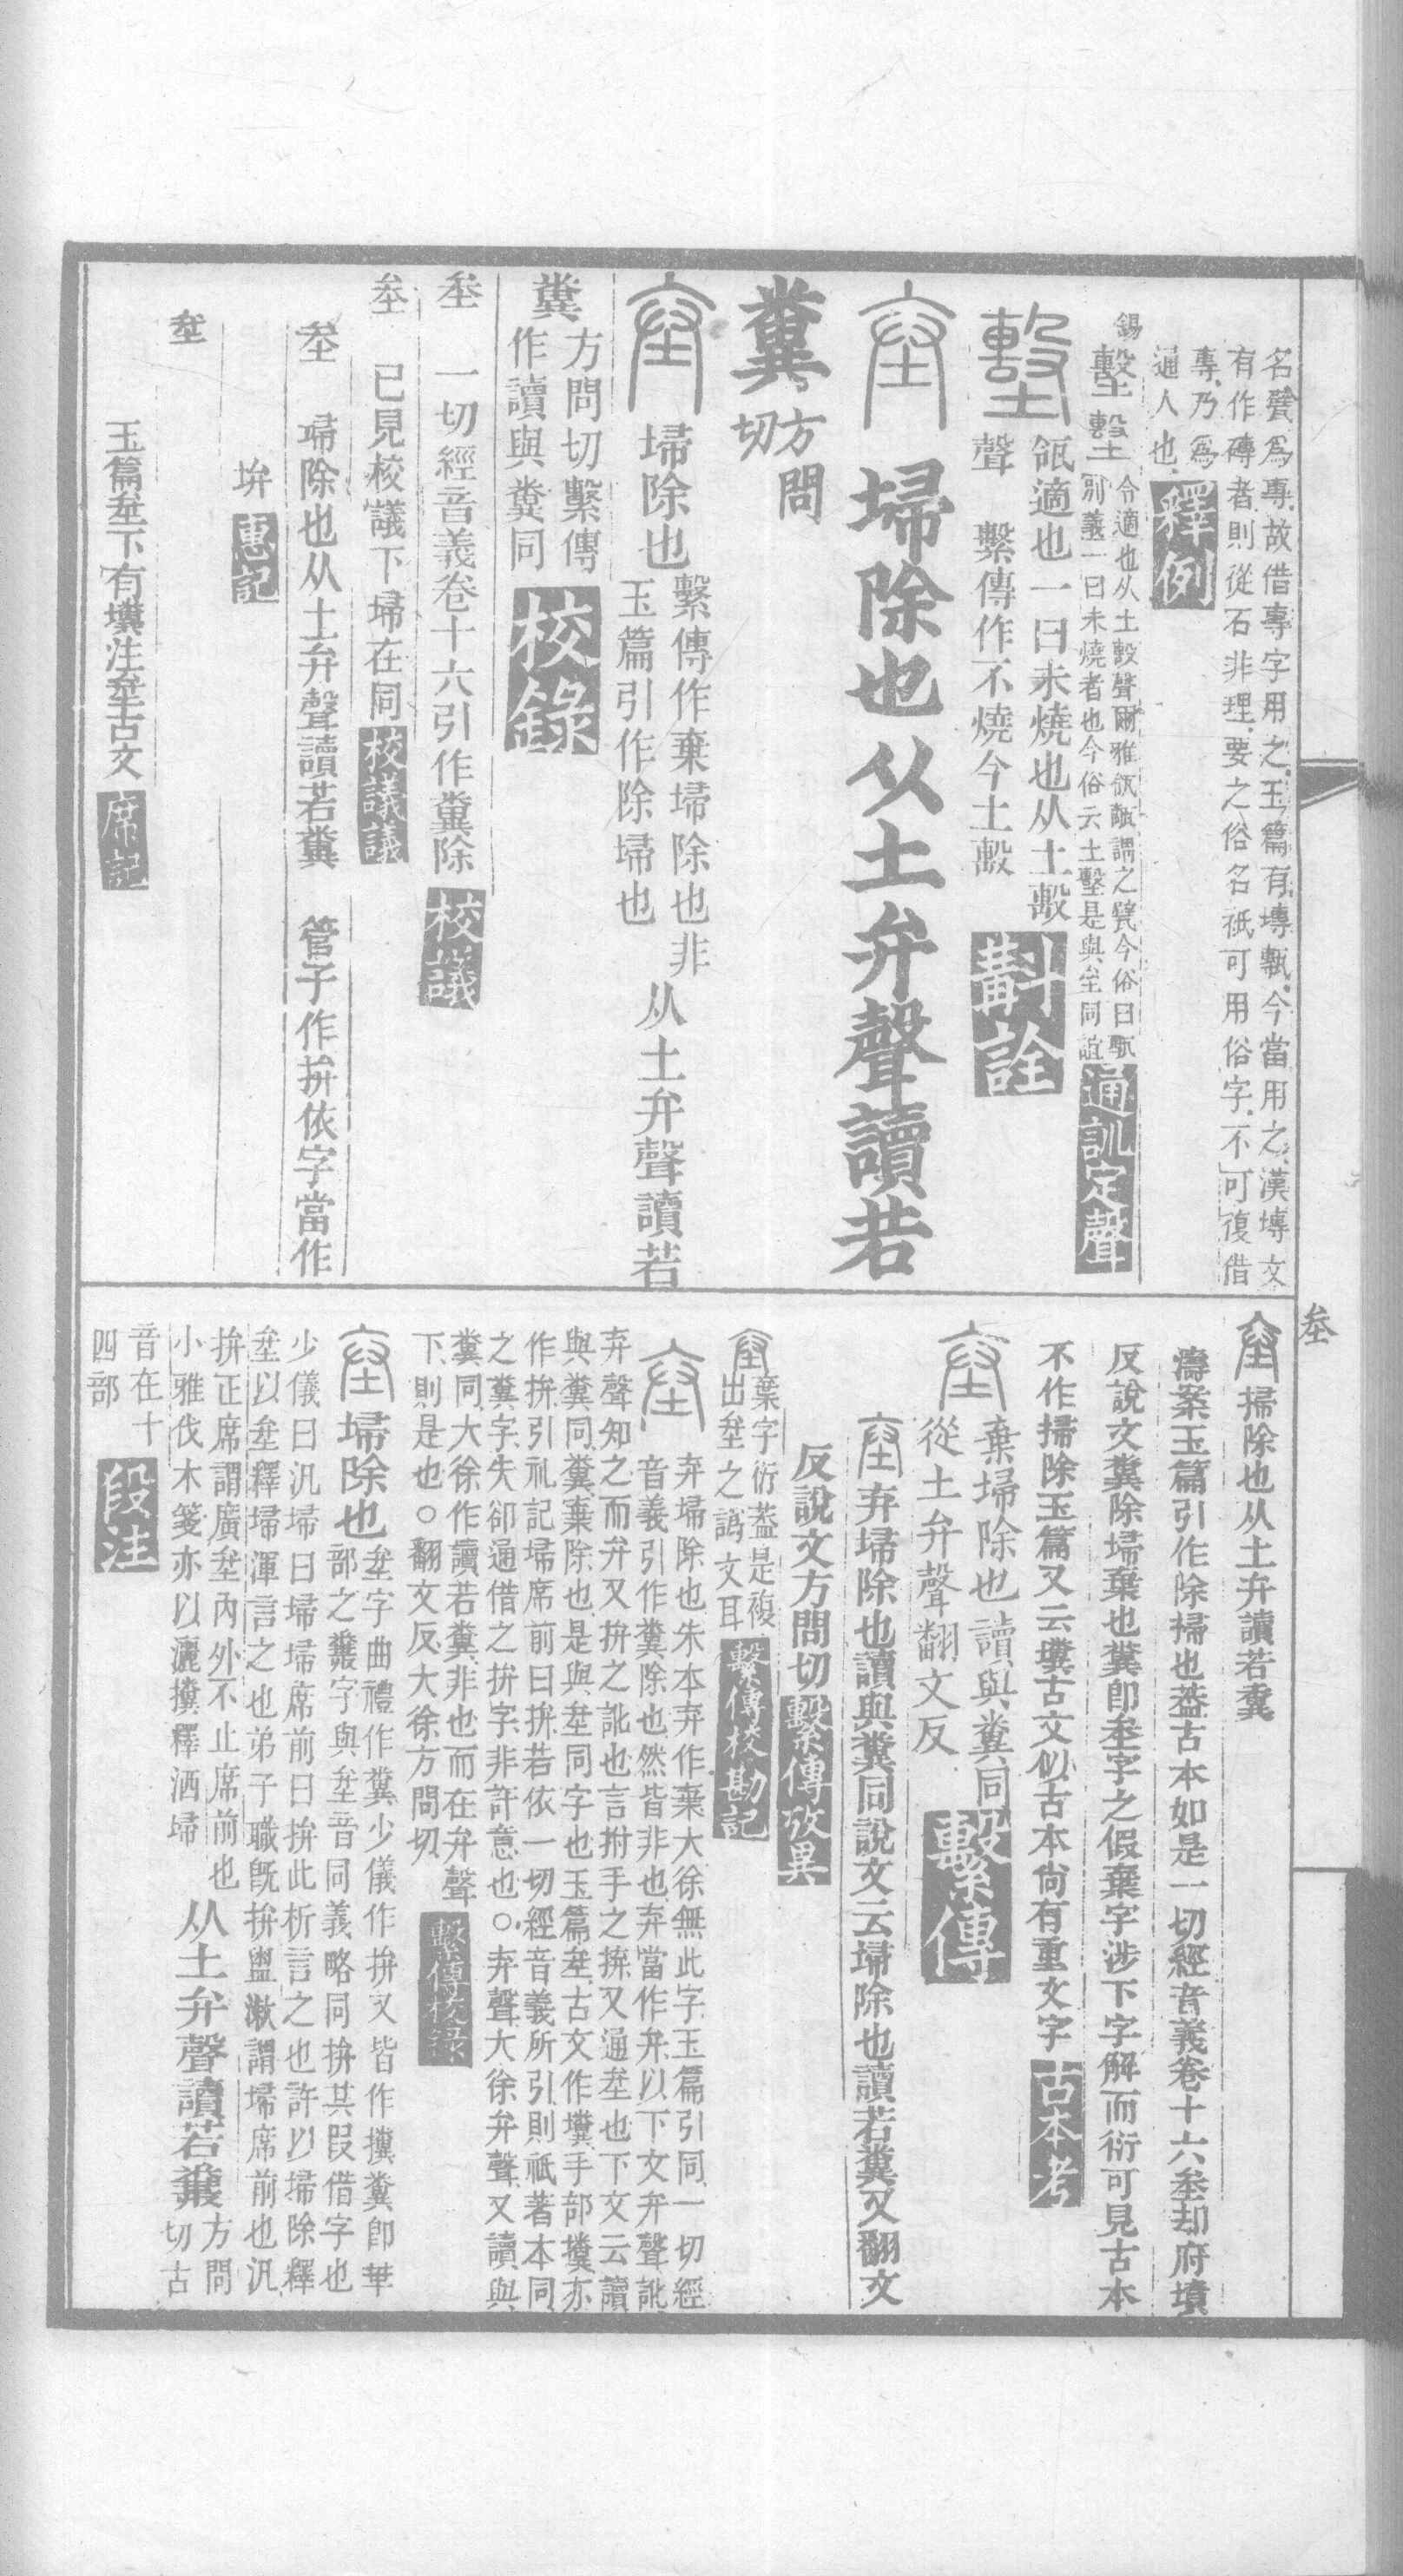 名甓爲專故借專字用之玉篇有塼甎今當用之漢塼文
有作磚者則從石非理要之俗名祇可用俗字不可復借
專乃爲
通人也釋例
錫墼墼
令適也从土毄聲爾雅瓴甋謂之甓今俗曰甎
別義一曰未燒者也今俗云土墼是與坴同誼通訓定聲
瓴適也一曰未燒也从土毄
聲 繫傳作不燒今土毄斠詮
埽除也从土弁聲讀若
糞方問切
埽除也
繫傳作棄埽除也非
玉篇引作除埽也
从土弁聲讀若
糞
方問切繫傳
作讀與糞同校錄
坌 一切經音義卷十六引作糞除校議
坌 已見校議下埽在同校議議
坌 埽除也从土弁聲讀若糞 管子作拚依字當作
坋惠記
坌 玉篇坌下有㙻注坌古文席記
坌
掃除也从土弁讀若糞
濤案玉篇引作除掃也蓋古本如是一切經音義卷十六坌却府墳
反說文糞除埽棄也糞卽坌字之假棄字涉下字解而衍可見古本
不作掃除玉篇又云㙻古文似古本尙有重文字古本考
棄埽除也讀與糞同
從土弁聲翻文反繫傳
弃埽除也讀與糞同說文云埽除也讀若糞又翻文
反說文方問切繫傳攷異
棄字衍蓋是複
出坌之譌文耳繫傳校勘記
弃埽除也朱本弃作棄大徐無此字玉篇引同一切經
音義引作糞除也然皆非也弃當作弁以下文弁聲訛
弃聲知之而弁又拚之訛也言拊手之拚又通坌也下文云讀
與糞同糞棄除也是與坌同字也玉篇坌古文作㙻手部㩾亦
作拚引礼記埽席前曰拚若依一切經音義所引則祇著本同
之糞字失卻通借之拚字非許意也○弃聲大徐弁聲又讀與
糞同大徐作讀若糞非也而在弁聲
下則是也○翻文反大徐方問切繫傳校錄
埽除也
坌字曲禮作糞少儀作拚又皆作㩾糞卽𠦒
部之𥻔字與坌音同義略同拚其叚借字也
少儀曰汎埽曰埽埽席前曰拚此析言之也許以埽除釋
坌以坌釋埽渾言之也弟子職旣拚盥漱謂埽席前也汎
拚正席謂廣坌內外不止席前也
小雅伐木箋亦以灑㩾釋洒埽
从土弁聲讀若𥻔
方問
切古
音在十
四部段注